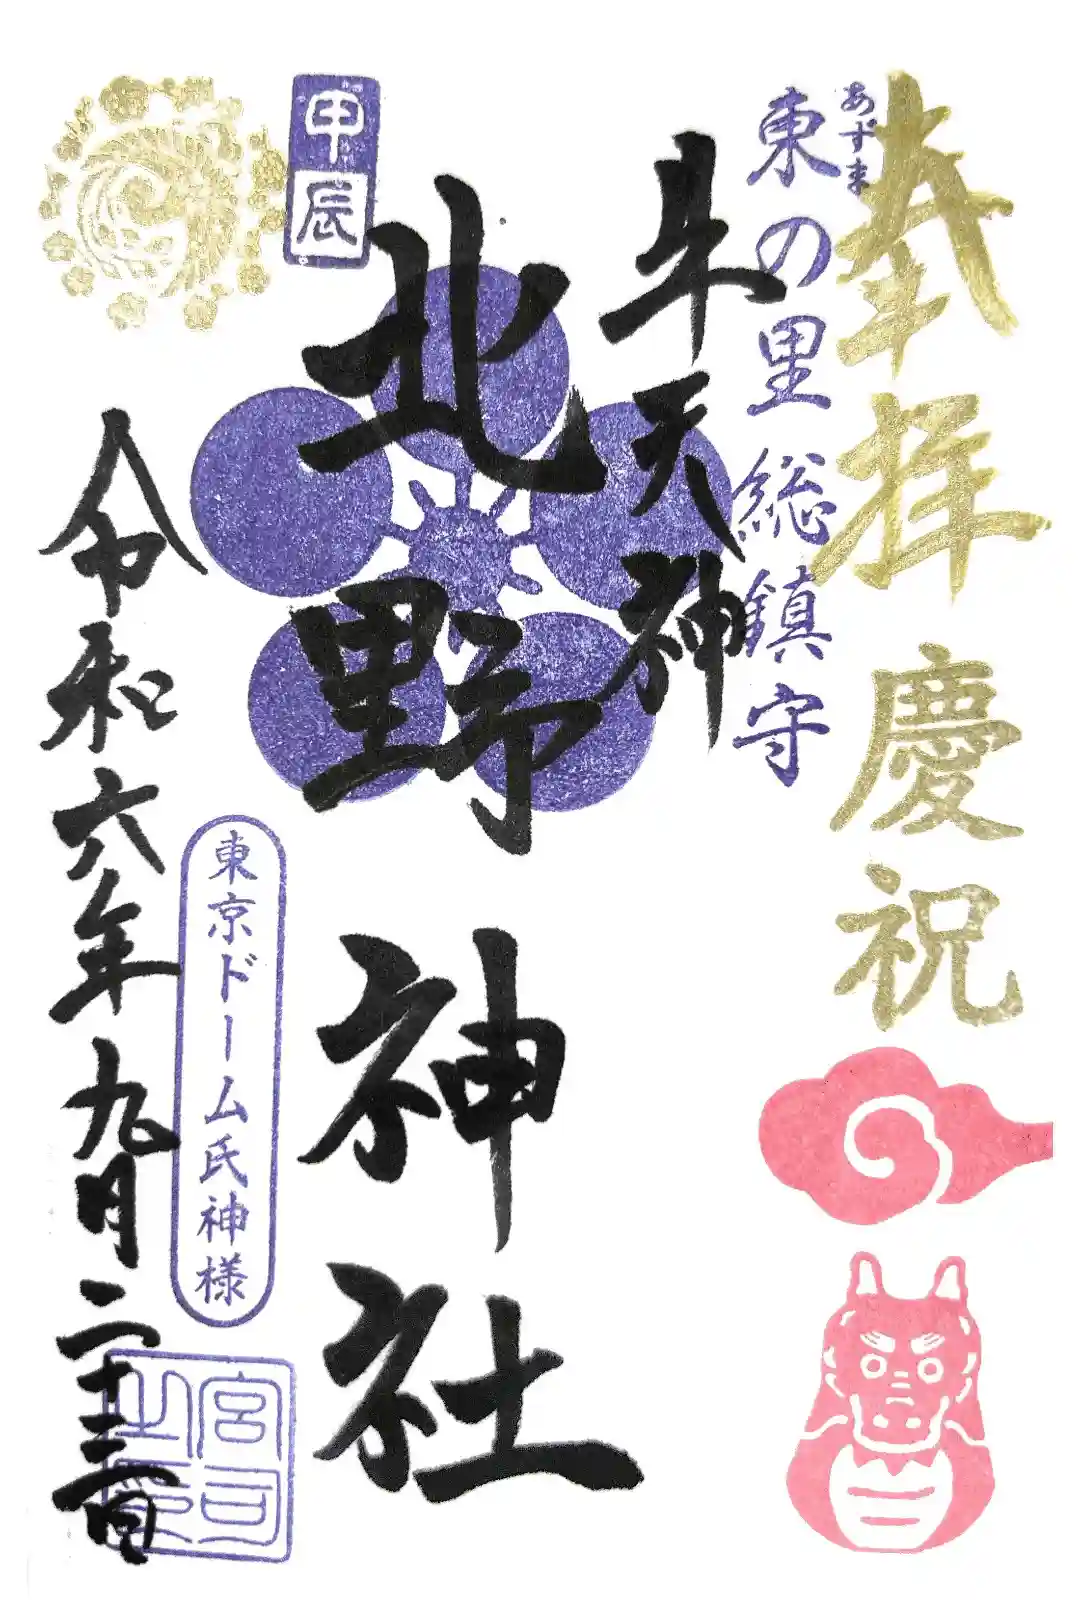 奉拝
慶祝
あずま
東の里総鎮守
牛天神
北野
神社
甲辰
東京ドーム氏神様
宮司之印
令和六年九月二十二日